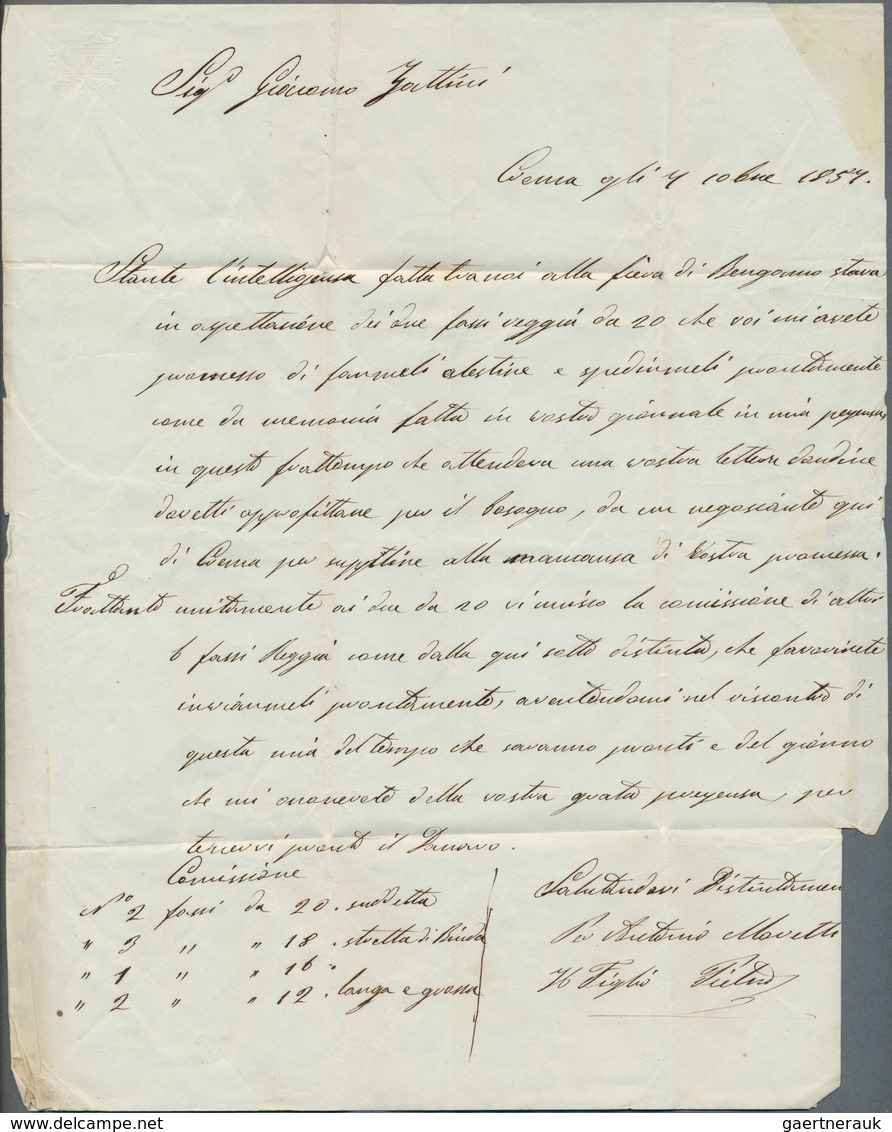 Sig.r Giacomo Zattini
Crema gli 4 10bre 1857.
Stante l'intelligensa fatta tra noi alla fiera di Bergamo stava
in aspettasione dei due fassi reggia da 20 che voi mi avete
promesso di farmeli alestire e spedirmeli prontamente
come da memoria fatta in vostro giornale in mia presensa
in questo frattempo che attendeva una vostra lettera
dovetti approfittare per il bisogno, da un negosiante qui
di Crema per supplire alla mancansa di Vostra promessa.
Frattanto unitamente ai due da 20 vi unisco la comissione di altri
6 fassi Reggia come dalla qui sotto distinta, che favorirete
inviarmeli prontamente, avertendomi nel riscontro di
questa mia del tempo che saranno pronti e del giorno
che mi onorerete della vostra grata presensa, per
tenervi pronto il Danaro.
Comissione
N.o 2 fassi da 20. suddetta
" 3 " " 18. stretta di
" 1 " " 16.
" 2 " " 12. larga e grossa
Salutandovi Distintamen
Per Antonio Moretti
Il Figlio Pietro
delcampe.net
gaertnerauk